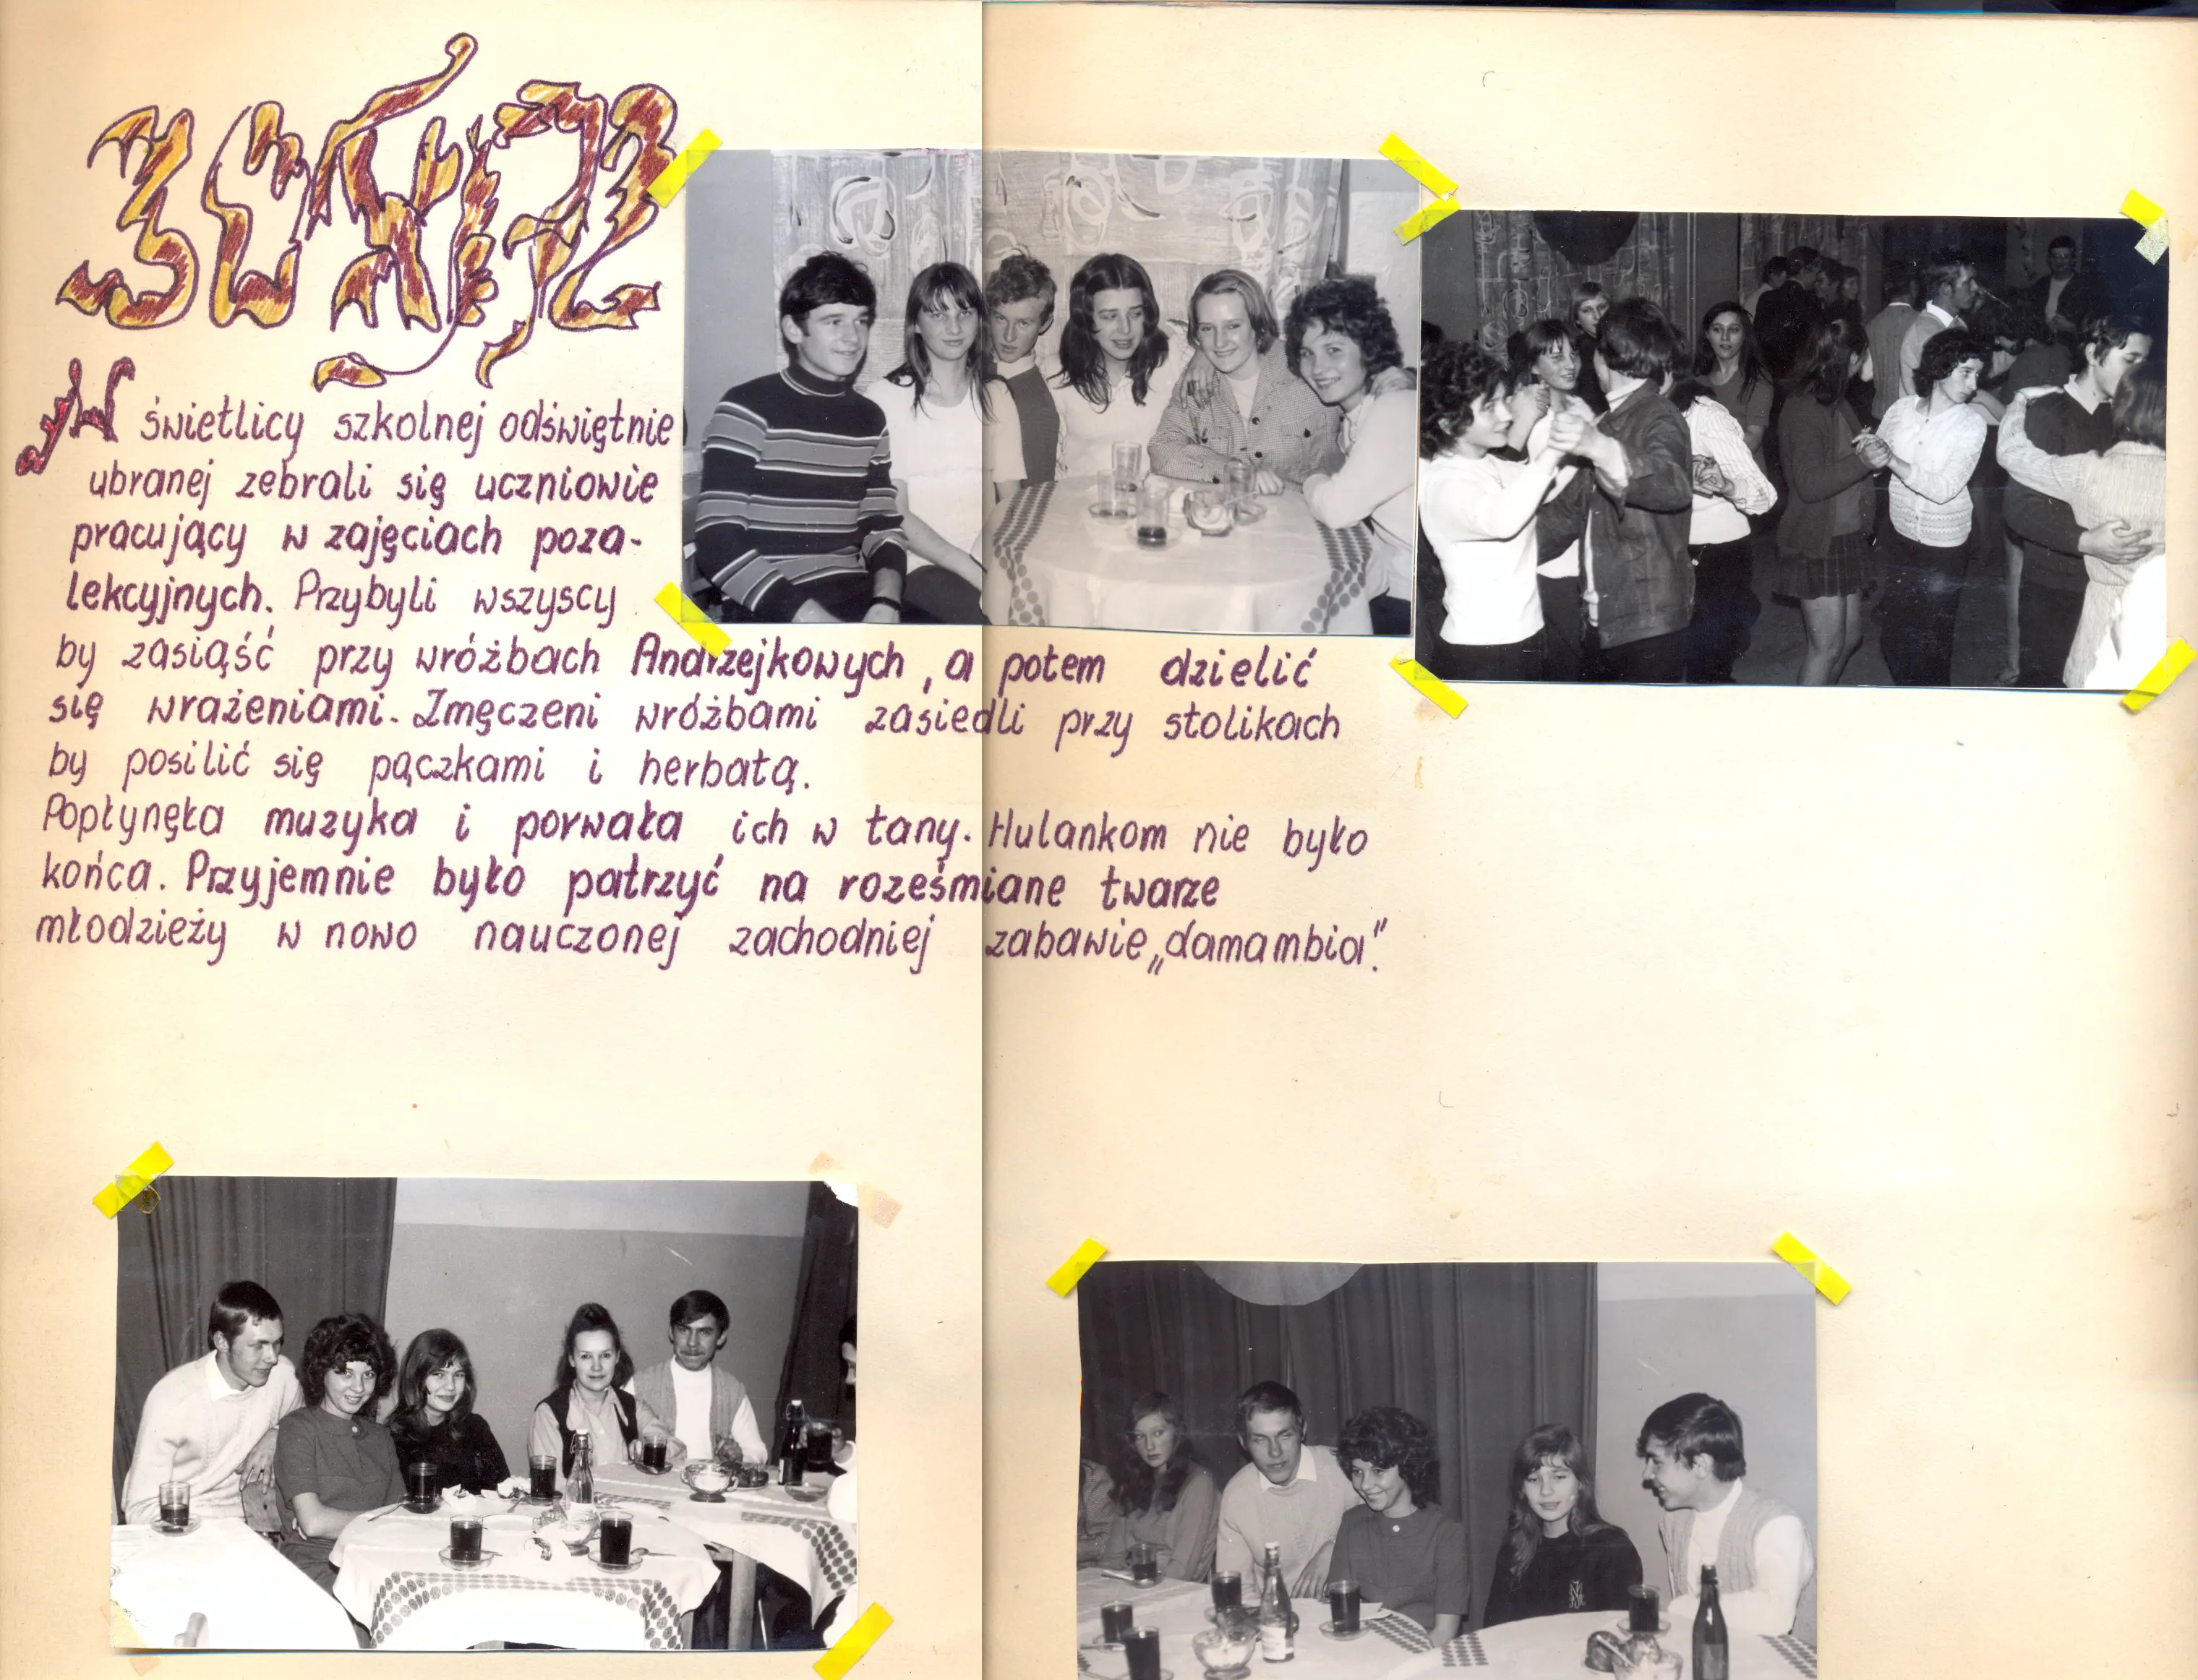 30 XI 72
W świetlicy szkolnej odświętnie
ubranej zebrali się uczniowie
pracujący w zajęciach poza-
lekcyjnych. Przybyli wszyscy
by zasiąść przy wróżbach Andrzejkowych, a potem dzielić
się wrażeniami. Zmęczeni wróżbami zasiedli przy stolikach
by posilić się pączkami i herbatą.
Popłynęła muzyka i porwała ich w tany. Hulankom nie było
końca. Przyjemnie było patrzyć na roześmiane twarze
młodzieży w nowo nauczonej zachodniej zabawie „damambia".